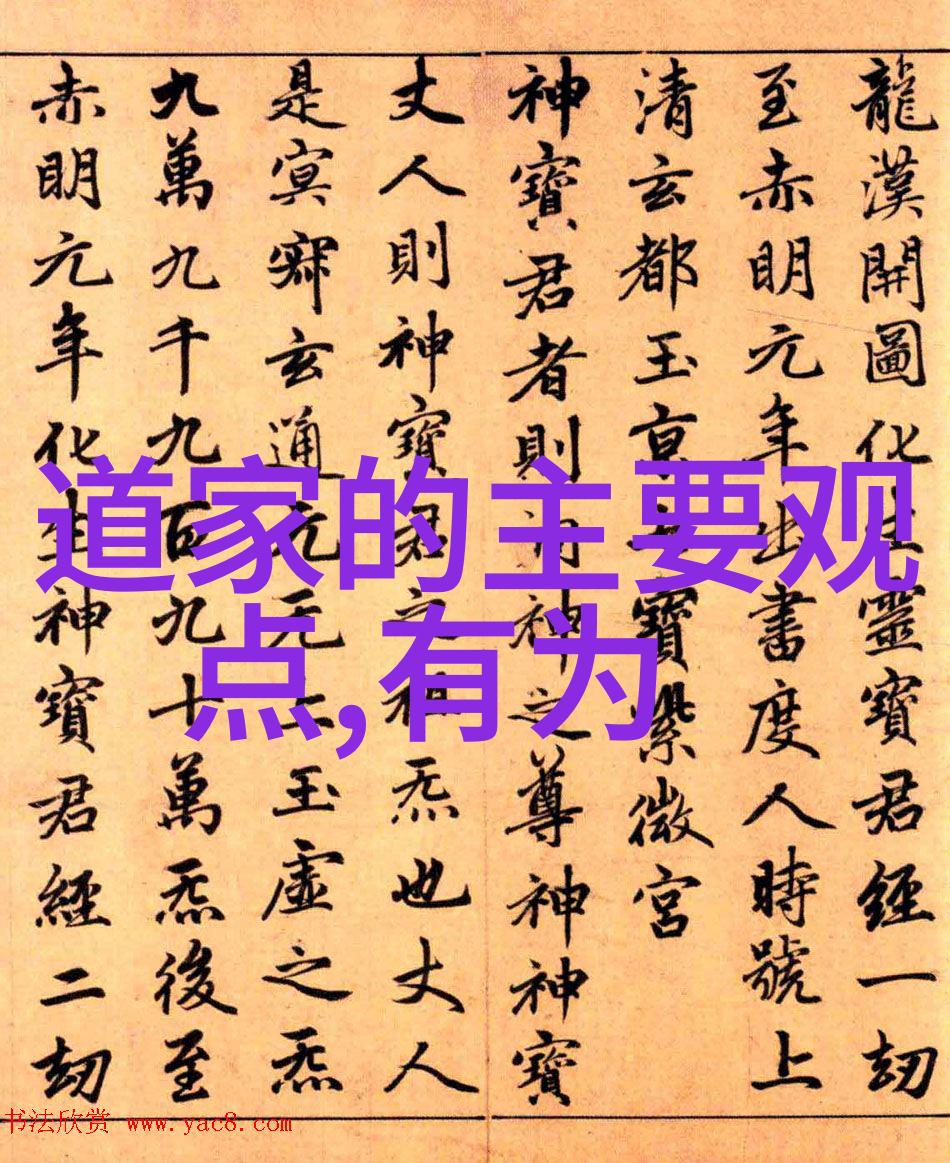 龍漢開圖化生靈寶君經一劫
至赤明元年出書度人時號上
清玄都玉京七寶紫微宮
神寶君者則洞神之尊神神寶
丈人則神寶君之祖炁也丈人
是冥寂玄通元无上玉虛之炁
九萬九千九百九十萬炁後至
赤明元年化生神寶君經二劫
道家的主要观
点,有为
书法欣赏 www.yac8.com